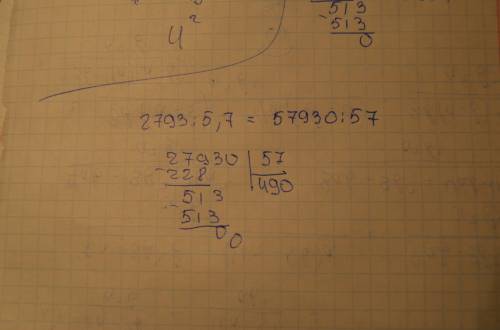 513
4²
513
0
2793:5,7 = 57930:57
27930 57
-228 490
513
-513
00